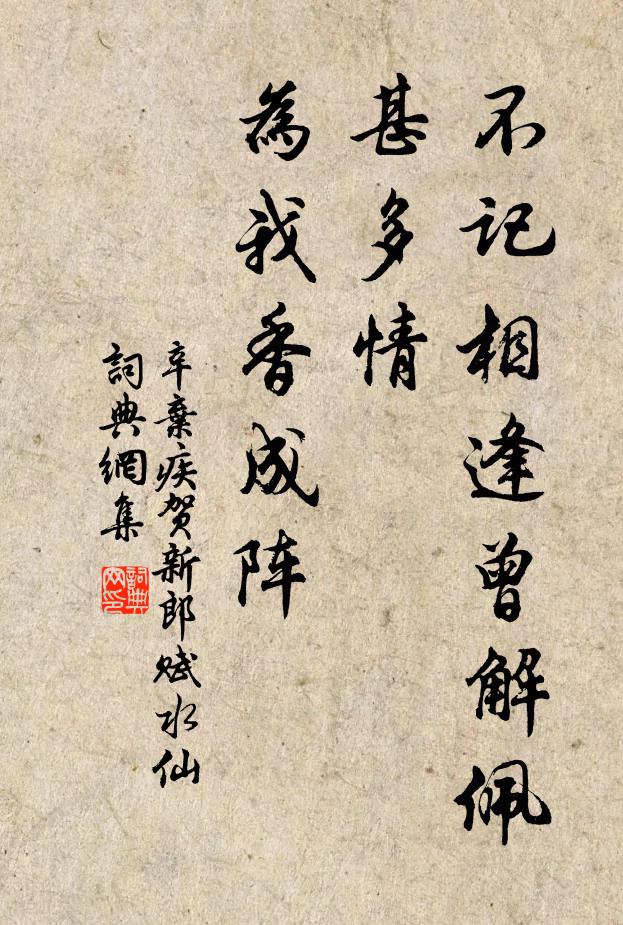 不记相逢曾解佩
甚多情
為我香成阵
辛棄疾贺新郎赋水仙
詞典網集
詞典網印